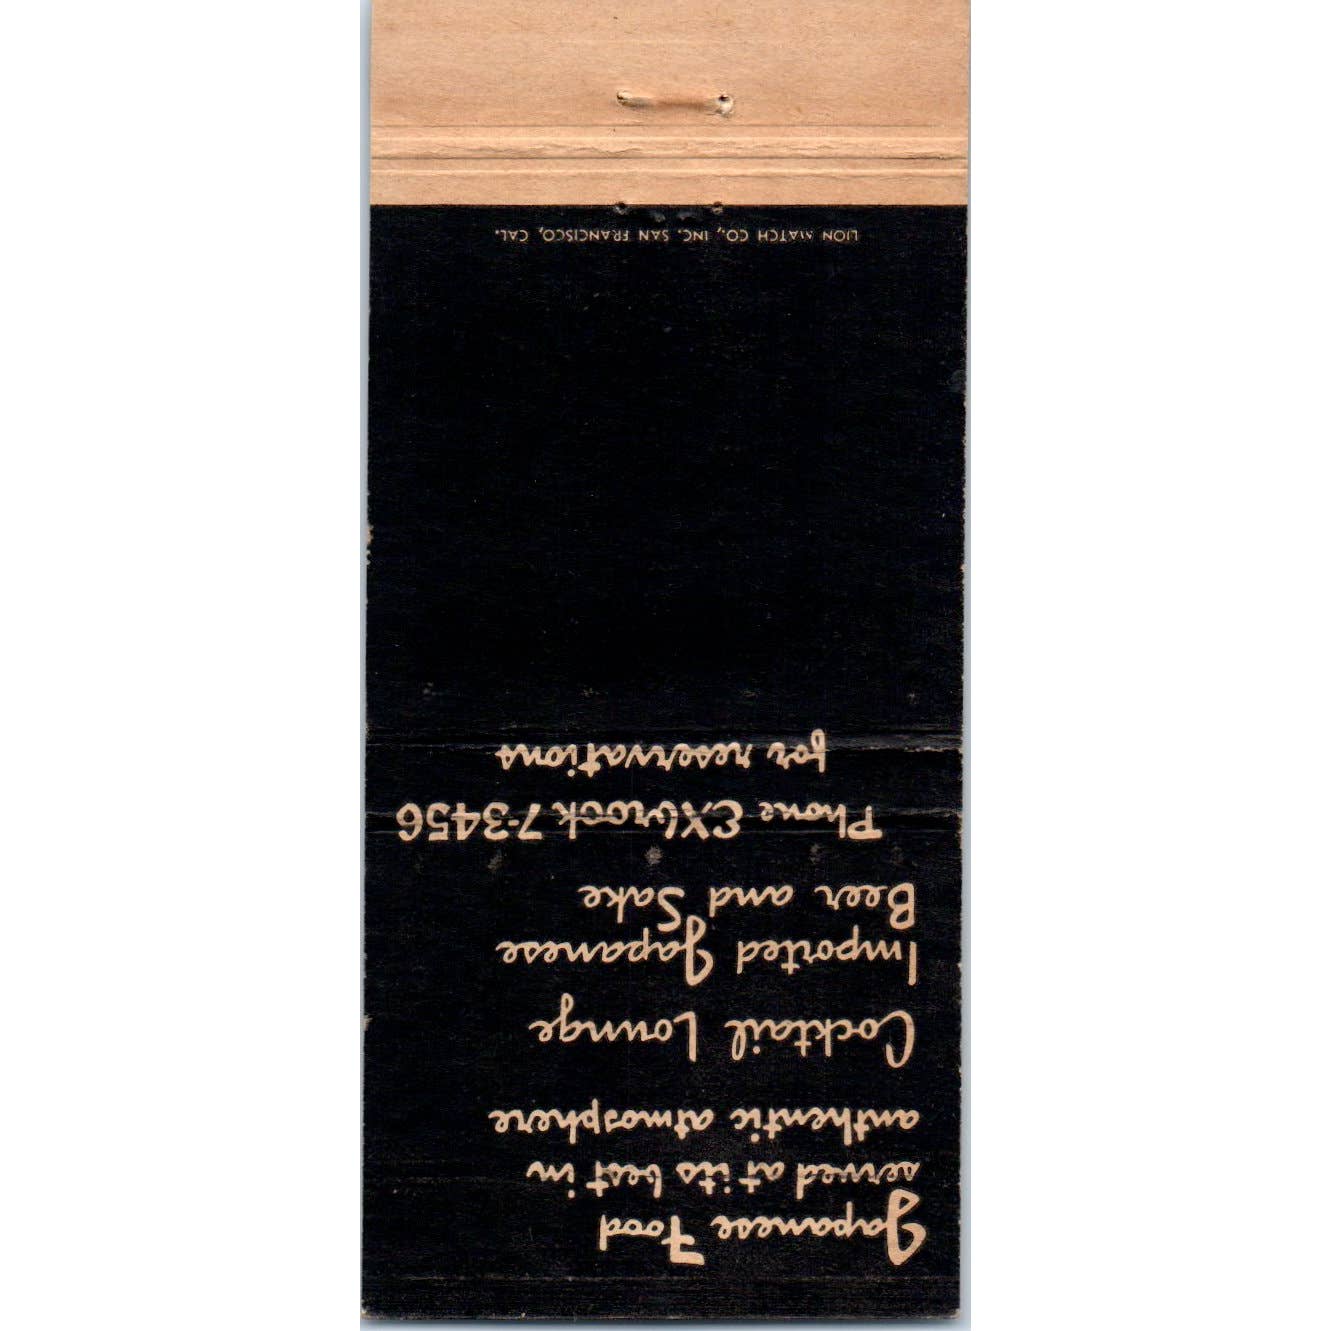 Japanese Food
served at its best in
authentic atmosphere
Cocktail Lounge
Imported Japanese
Beer and Sake
Phone EXbrook 7-3456
for reservations
LION MATCH CO., INC. SAN FRANCISCO, CAL.